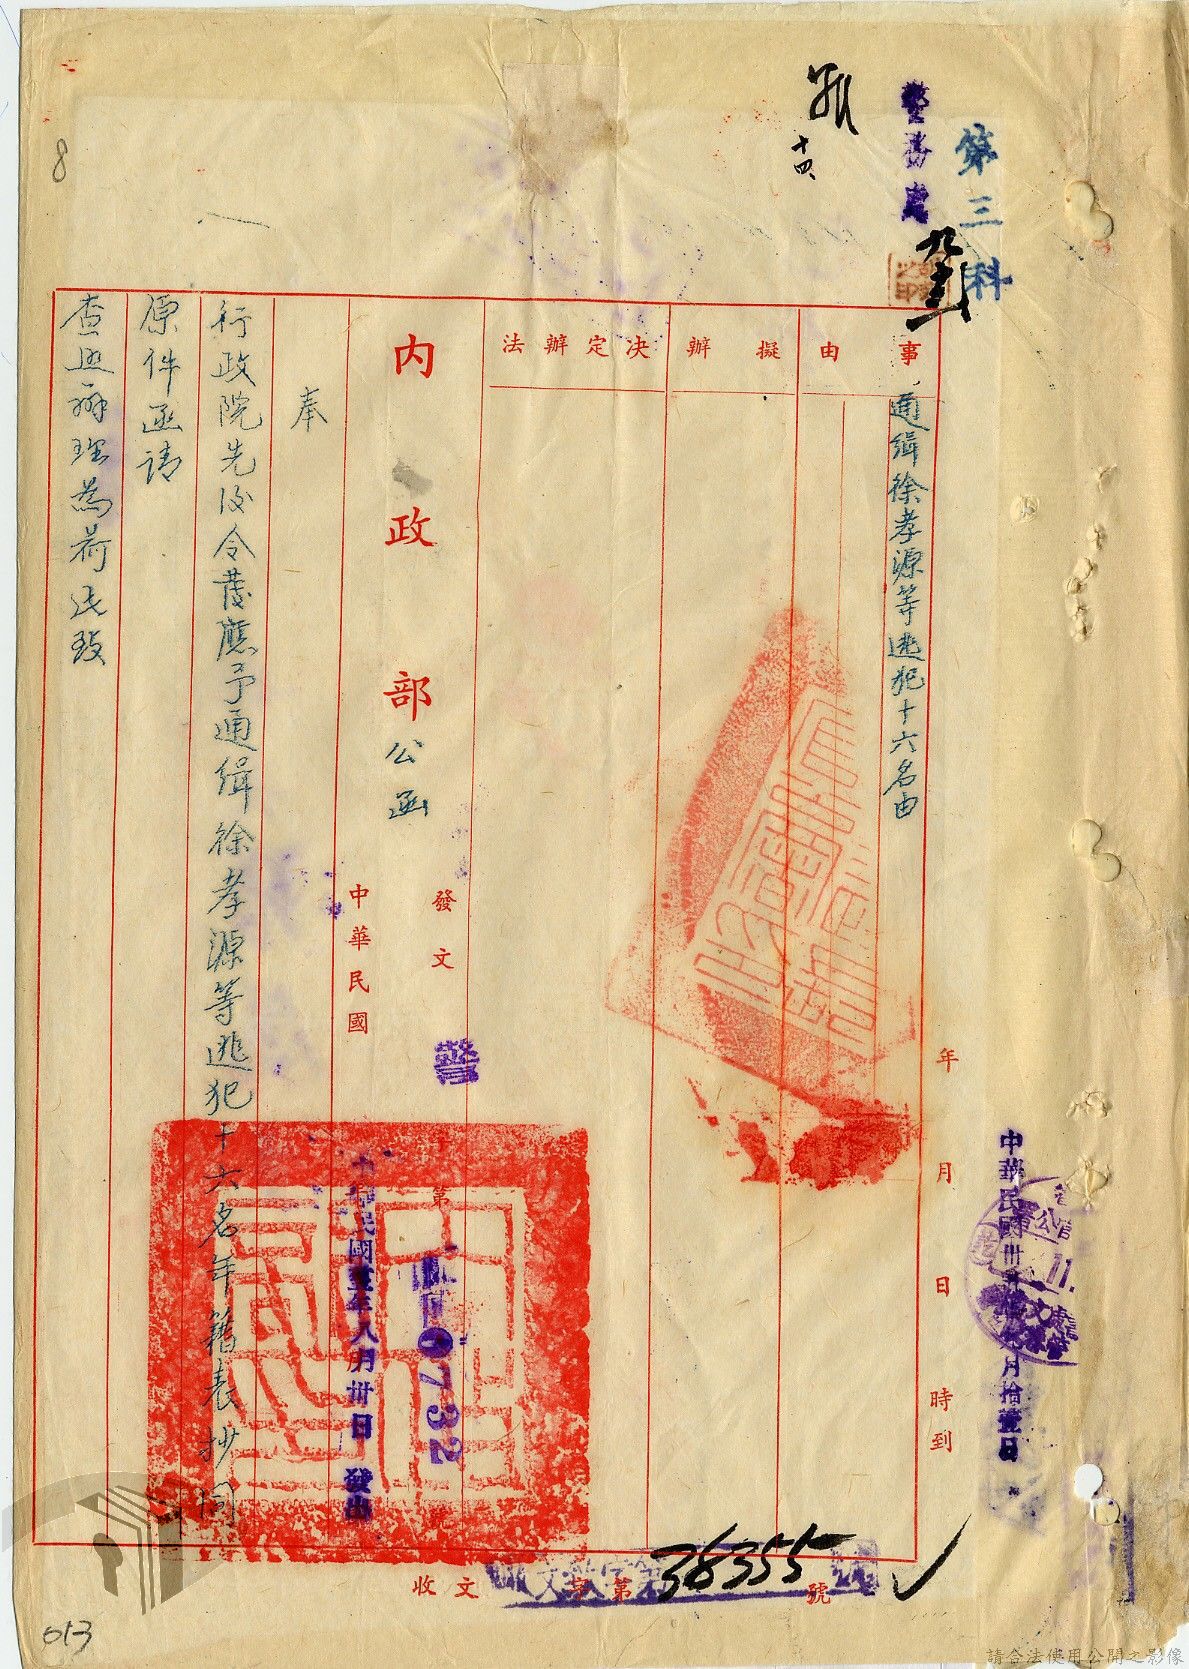 第三科
警務處
十四
事由
通緝徐孝源等逃犯十六名由
擬辦
決定辦法
年月日時到
中華民國卅
月拾壹日
內政部公函
發文
警
第
0732
號
中華民國
年八月卅日發出
奉
行政院先後令發應予通緝徐孝源等逃犯十六名年籍表抄同
原件函請
查照辦理為荷此致
收文
字第38355號
8
013
請合法使用公開之影像